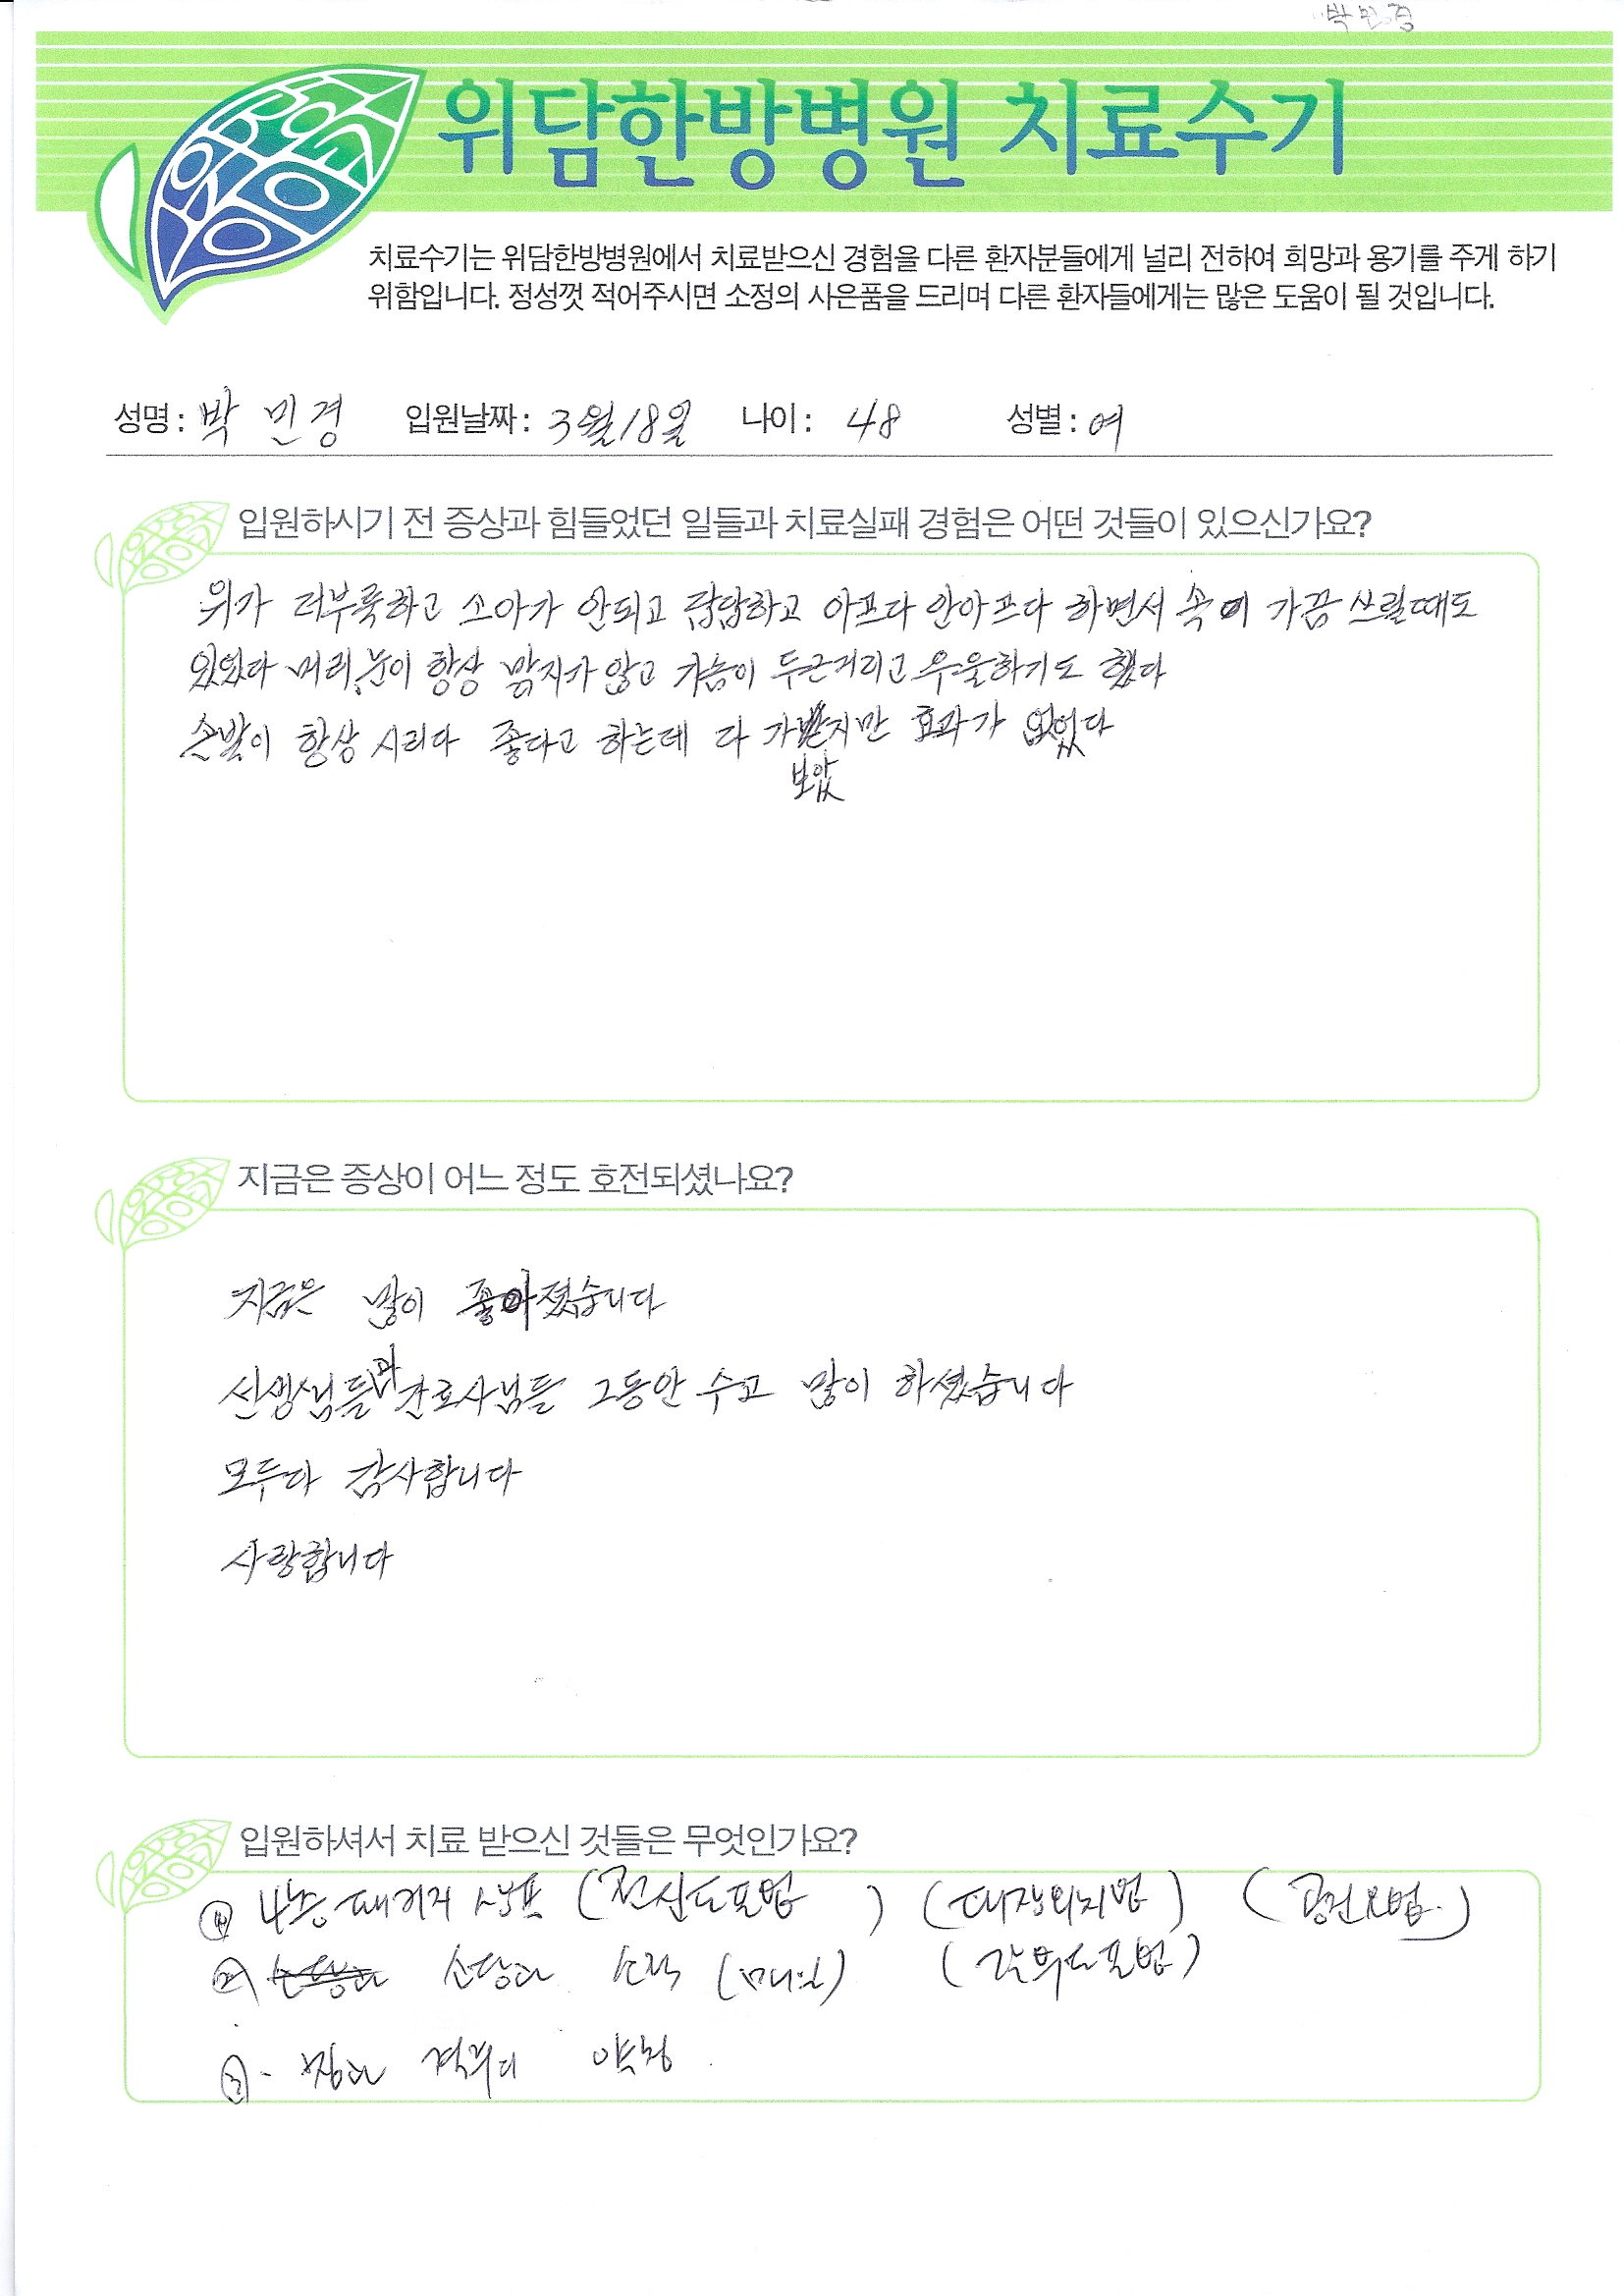 박민경
위담한방병원 치료수기
치료수기는 위담한방병원에서 치료받으신 경험을 다른 환자분들에게 널리 전하여 희망과 용기를 주게 하기
위함입니다. 정성껏 적어주시면 소정의 사은품을 드리며 다른 환자들에게는 많은 도움이 될 것입니다.
성명 : 박 민 경 입원날짜 : 3월18일 나이 : 48 성별 : 여
입원하시기 전 증상과 힘들었던 일들과 치료실패 경험은 어떤 것들이 있으신가요?
위가 더부룩하고 소아가 안되고 답답하고 아프다 안아프다 하면서 속이 가끔 쓰릴때도
있었다 머리, 눈이 항상 맑지가 않고 가슴이 두근거리고 우울하기도 했다
손발이 항상 시리다 좋다고 하는데 다 가보았지만 효과가 없었다
지금은 증상이 어느 정도 호전되셨나요?
지금은 많이 좋아졌습니다
선생님들과 간호사님들 그동안 수고 많이 하셨습니다
모두다 감사합니다
사랑합니다
입원하셔서 치료 받으신 것들은 무엇인가요?
(전신도포법) (대장위치법)
(매일)
③ 약침